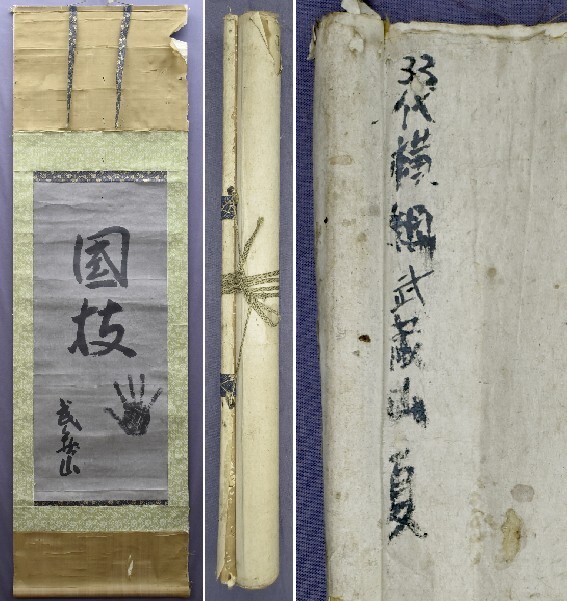 国技
武蔵山
33代横綱武蔵山 夏